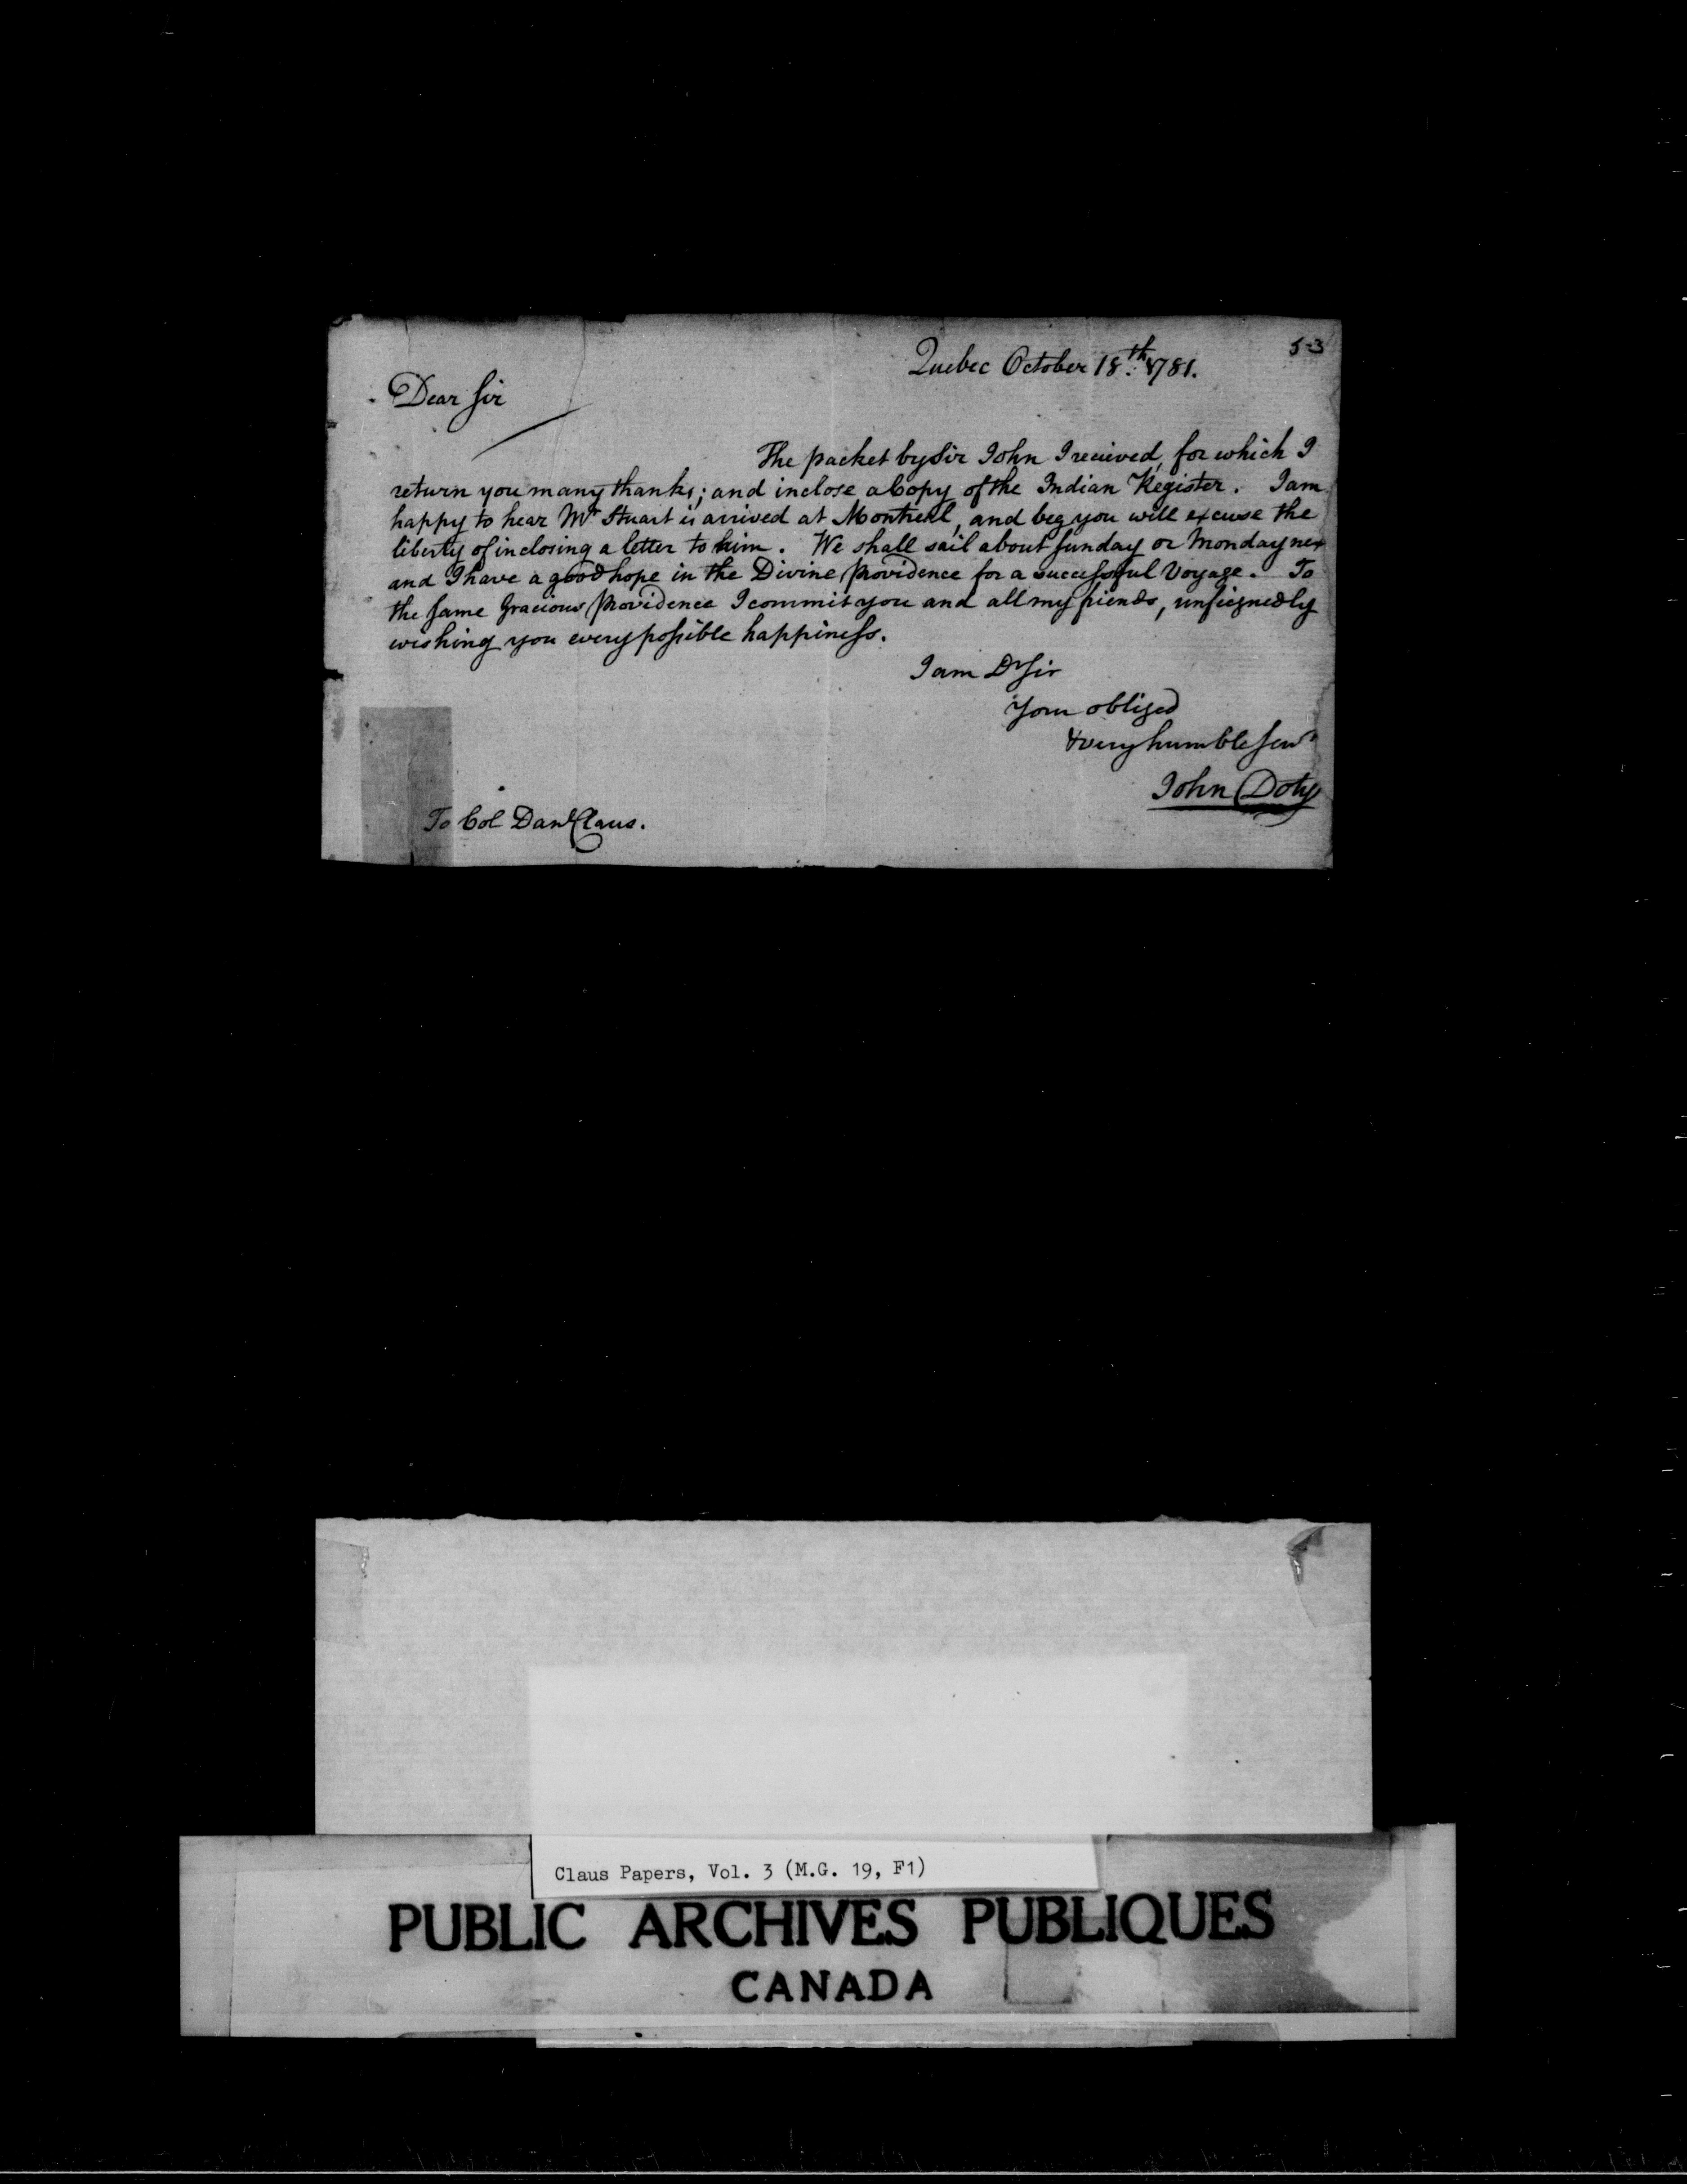 53
Quebec October 18.th 1781.
Dear Sir
The packet by Sir John I recieved, for which I
return you many thanks; and inclose a Copy of the Indian Register. I am
happy to hear Mr Stuart is arrived at Montreal, and beg you will excuse the
liberty of inclosing a letter to him. We shall sail about Sunday or Monday nex
and I have a good hope in the Divine Providence for a successful Voyage. To
the same Gracious Providence I commit you and all my friends, unfeignedly
wishing you every possible happiness.
I am Dr Sir
Your obliged
& very humble Servt
John Doty
To Col Danl Claus.
Claus Papers, Vol. 3 (M.G. 19, F1)
PUBLIC ARCHIVES PUBLIQUES
CANADA